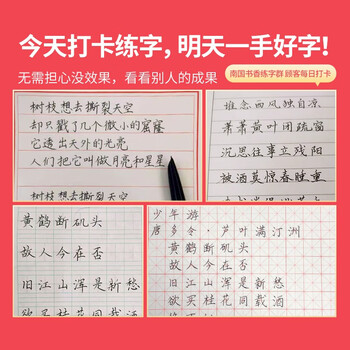 今天打卡练字，明天一手好字！
无需担心没效果，看看别人的成果
南国书香练字群 顾客每日打卡
树枝想去撕裂天空
却只戳了几个微小的窟窿
它透出天外的光亮
人们把它叫做月亮和星星
树枝想去撕裂天空
谁念西风独自凉
萧萧黄叶闭疏窗
沉思往事立残阳
被酒莫惊春睡重
黄鹤断矶头
故人今在否
旧江山浑是新愁
欲买桂花同载酒
少年游
唐多令·芦叶满汀洲
黄鹤断矶头
故人今在否
旧江山浑是新愁
欲买桂花同载酒